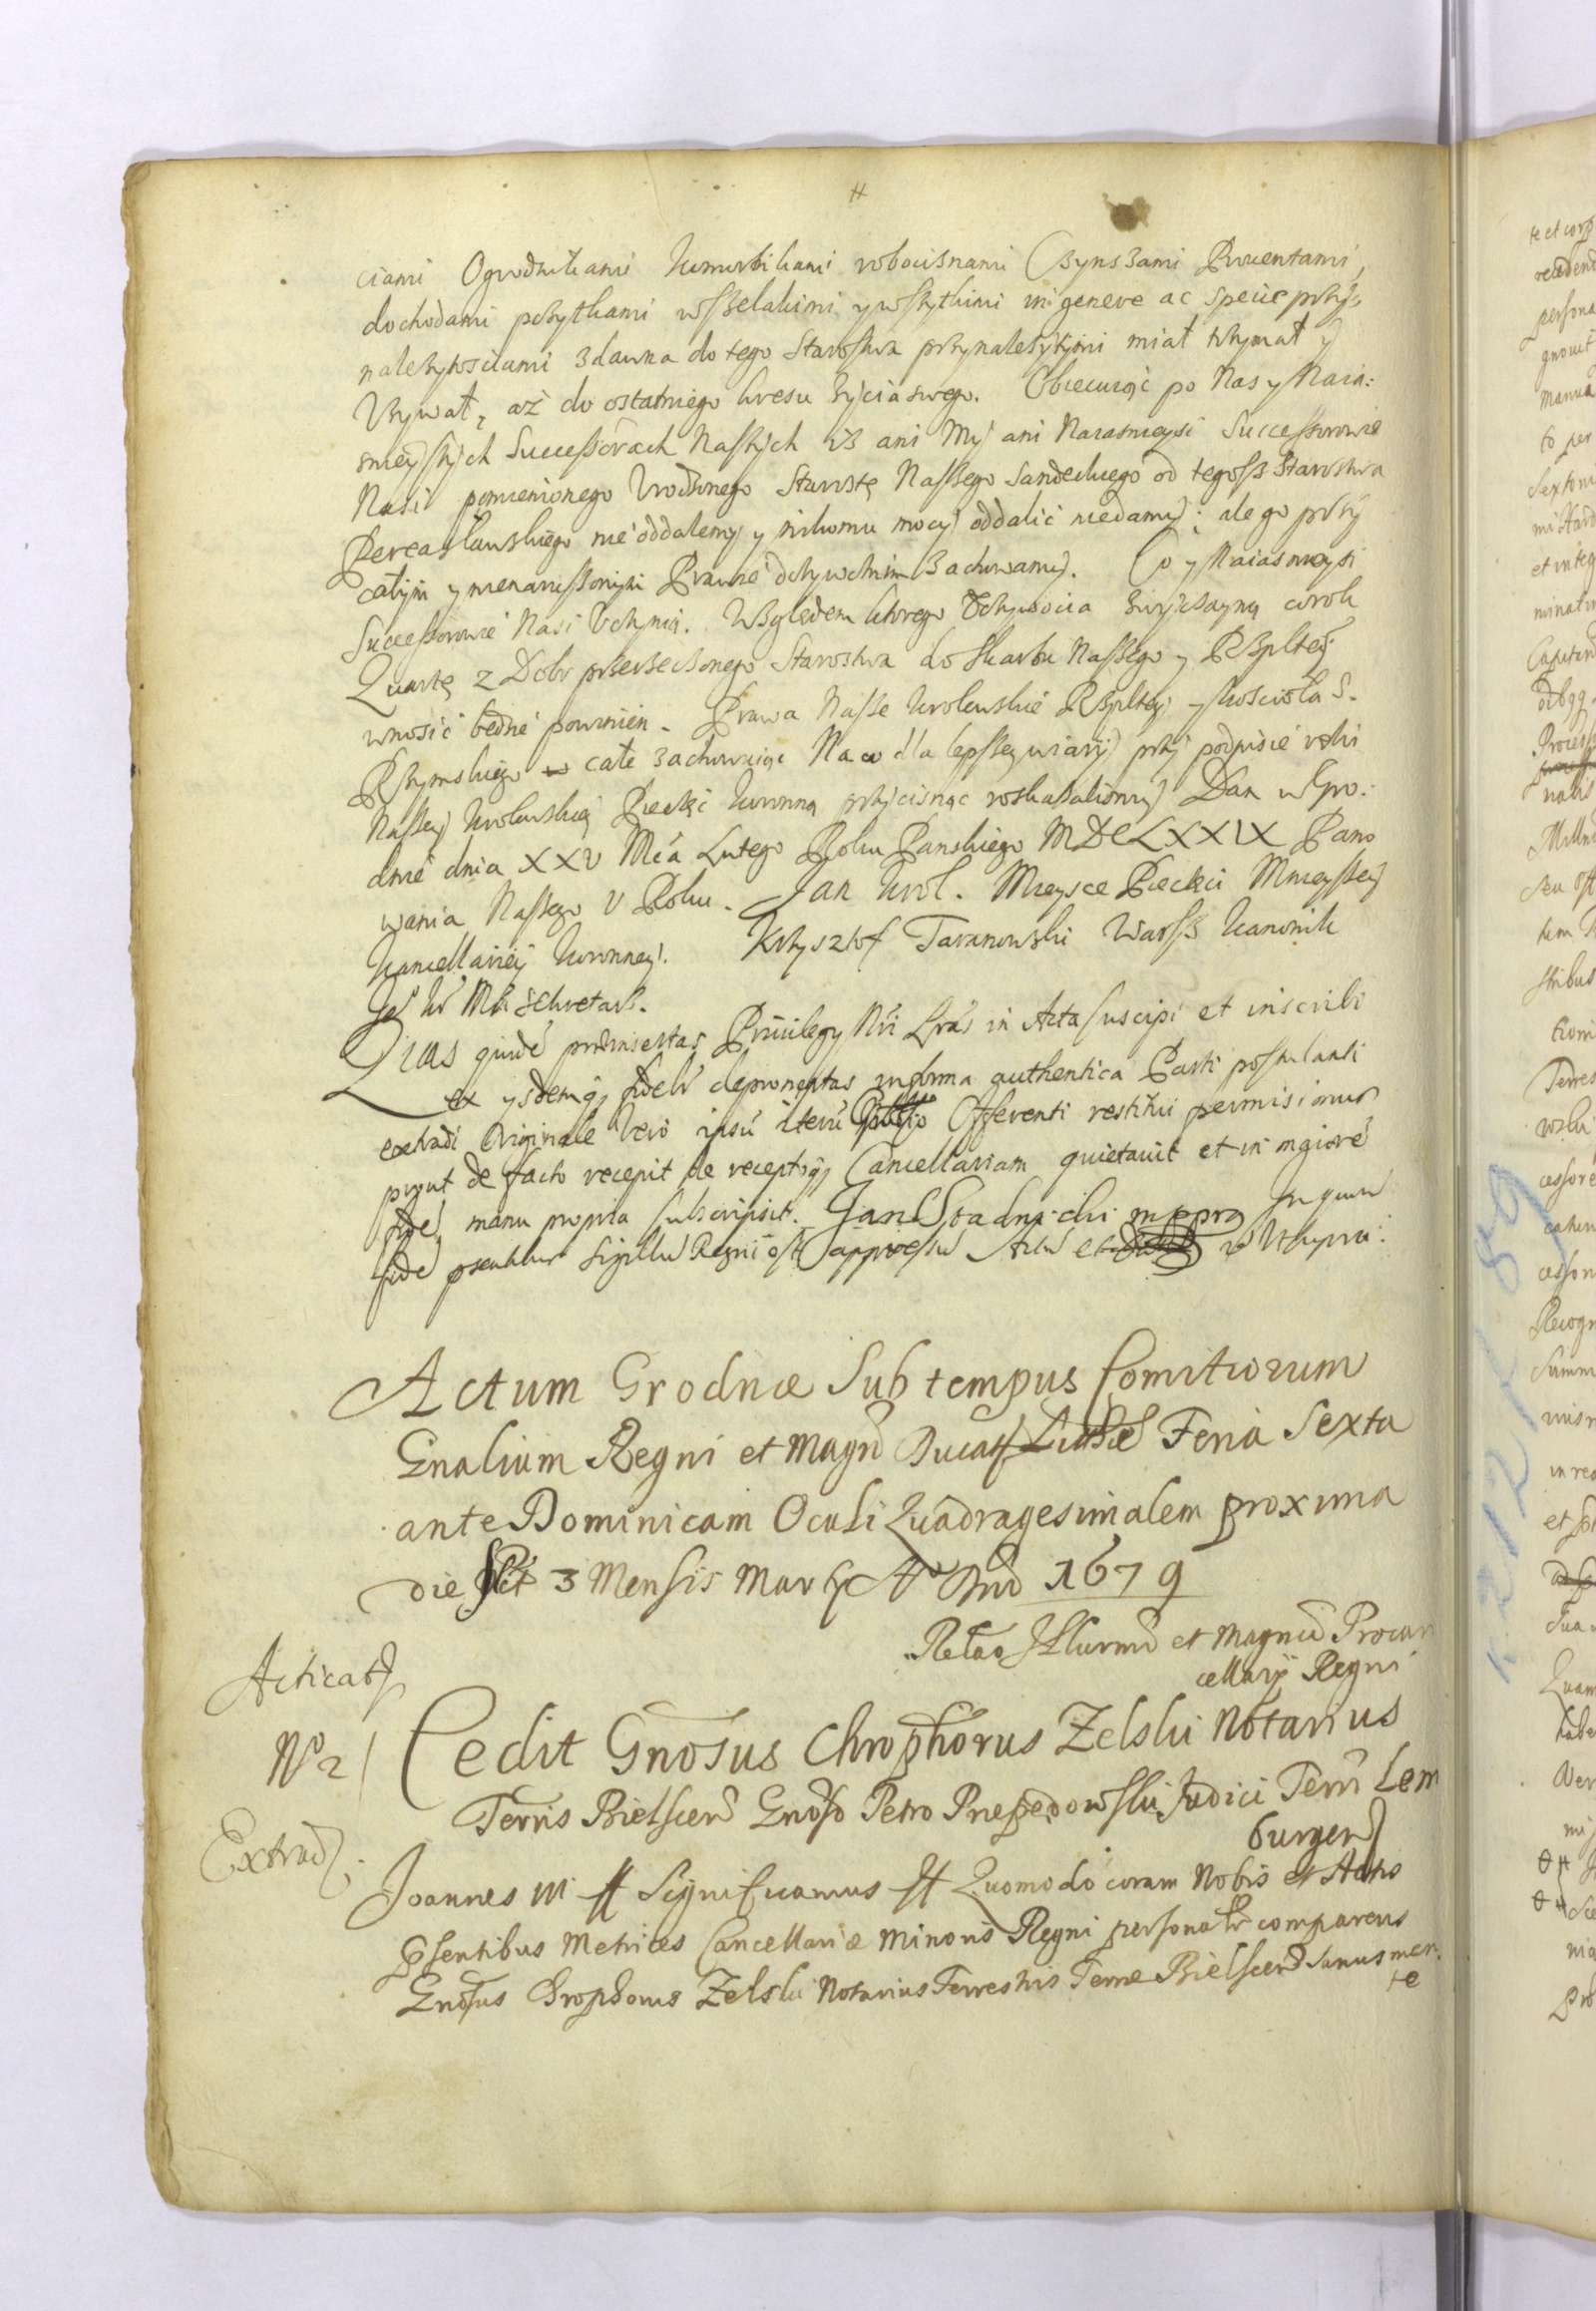 ciami Ogrodnikami Komornikami robociznami Czynszami Prouentami,
dochodami pożytkami wszelakimi y wszytkimi in genere ac specie przy,
należytosciami zdawna do tego Starostwa przynależytymi miał trzymał y
Vżywał, aż do ostatniego kresu życia swego. Obiecuiąc po Nas y Naia:
snieyszych Successorach Naszych iż ani My ani Naiasnieysi Successorowie
Nasi pomienionego Vrodzonego Starostę Naszego Sandeckiego od tegosz Starostwa
Pereasławskiego nie oddalemy y nikomu mocy oddalić niedamy; ale go przy
całym y nienaruszonym Prawie dożywotnim zachowamy. Co y Naiasnieysi
Successorowie Nasi Vczynią. Względem ktorego dożywocia zwyczayną co rok
Quartę z Dobr przerzeczonego Starostwa do Skarbu Naszego y Rzpltey
wnosić będzie powinien. Prawa Nasze Krolewskie Rzpltey y Koscioła S.
Rzymskiego w cale zachowuiąc Na co dla lepszey wiary przy podpisie ręki
Naszey Krolewskiey Pieczęć Koronną przycisnąc roskazalismy Dan w Gro:
dnie dnia XXV Mca Lutego Roku Panskiego MDCLXXIX Pano
wania Naszego V Roku. Jan Krol. Mieysce Pieczęci Mnieyszey
Kancellariey Koronney. Krzysztof Taranowski Warsz Kanonik
Je° Kr Mći Sekretarz.
Quas quidē præinsertas Priuilegy Nri Lras in Acta suscipi et inscribi
ex ysdemq; fideli depromptas in forma authentica Parti postulanti
extradi Originale vero ipsū iterū Offerenti restitui permisimus
prout de facto recepit de receptisq; Cancellariam quietauit et in maiorē
fidē manu propria subscripsit. Jan Stadnicki mppra In quorū
fidē psentibus Sigillū Regni est appressū Actū et vt supra:
Actum Grodnæ Sub tempus Comitiorum
Gnalium Regni et Magni Ducatꝯ Litthæ Feria Sexta
ante Dominicam Oculi Quadragesimalem proxima
die scilt 3 Mensis Marty A° Dni 1679
Relāo Illustrmi et Magnci Procan
cellary Regni
Acticatꝯ
N° 2
Cedit Gnosus Chrophorus Zelski Notarius
Terris Bielscen Gnoso Petro Przepedowski Judici Terri Lem
burgen
Extrad.
Joannes III # Significamus # Quomodo coram Nobis et Actis
psentibus Metrices Cancellariæ Minoris Regni personalr comparens
Gnosus Chrophorus Zelski Notarius Terrestris Terræ Bielscen Sanus men:
te